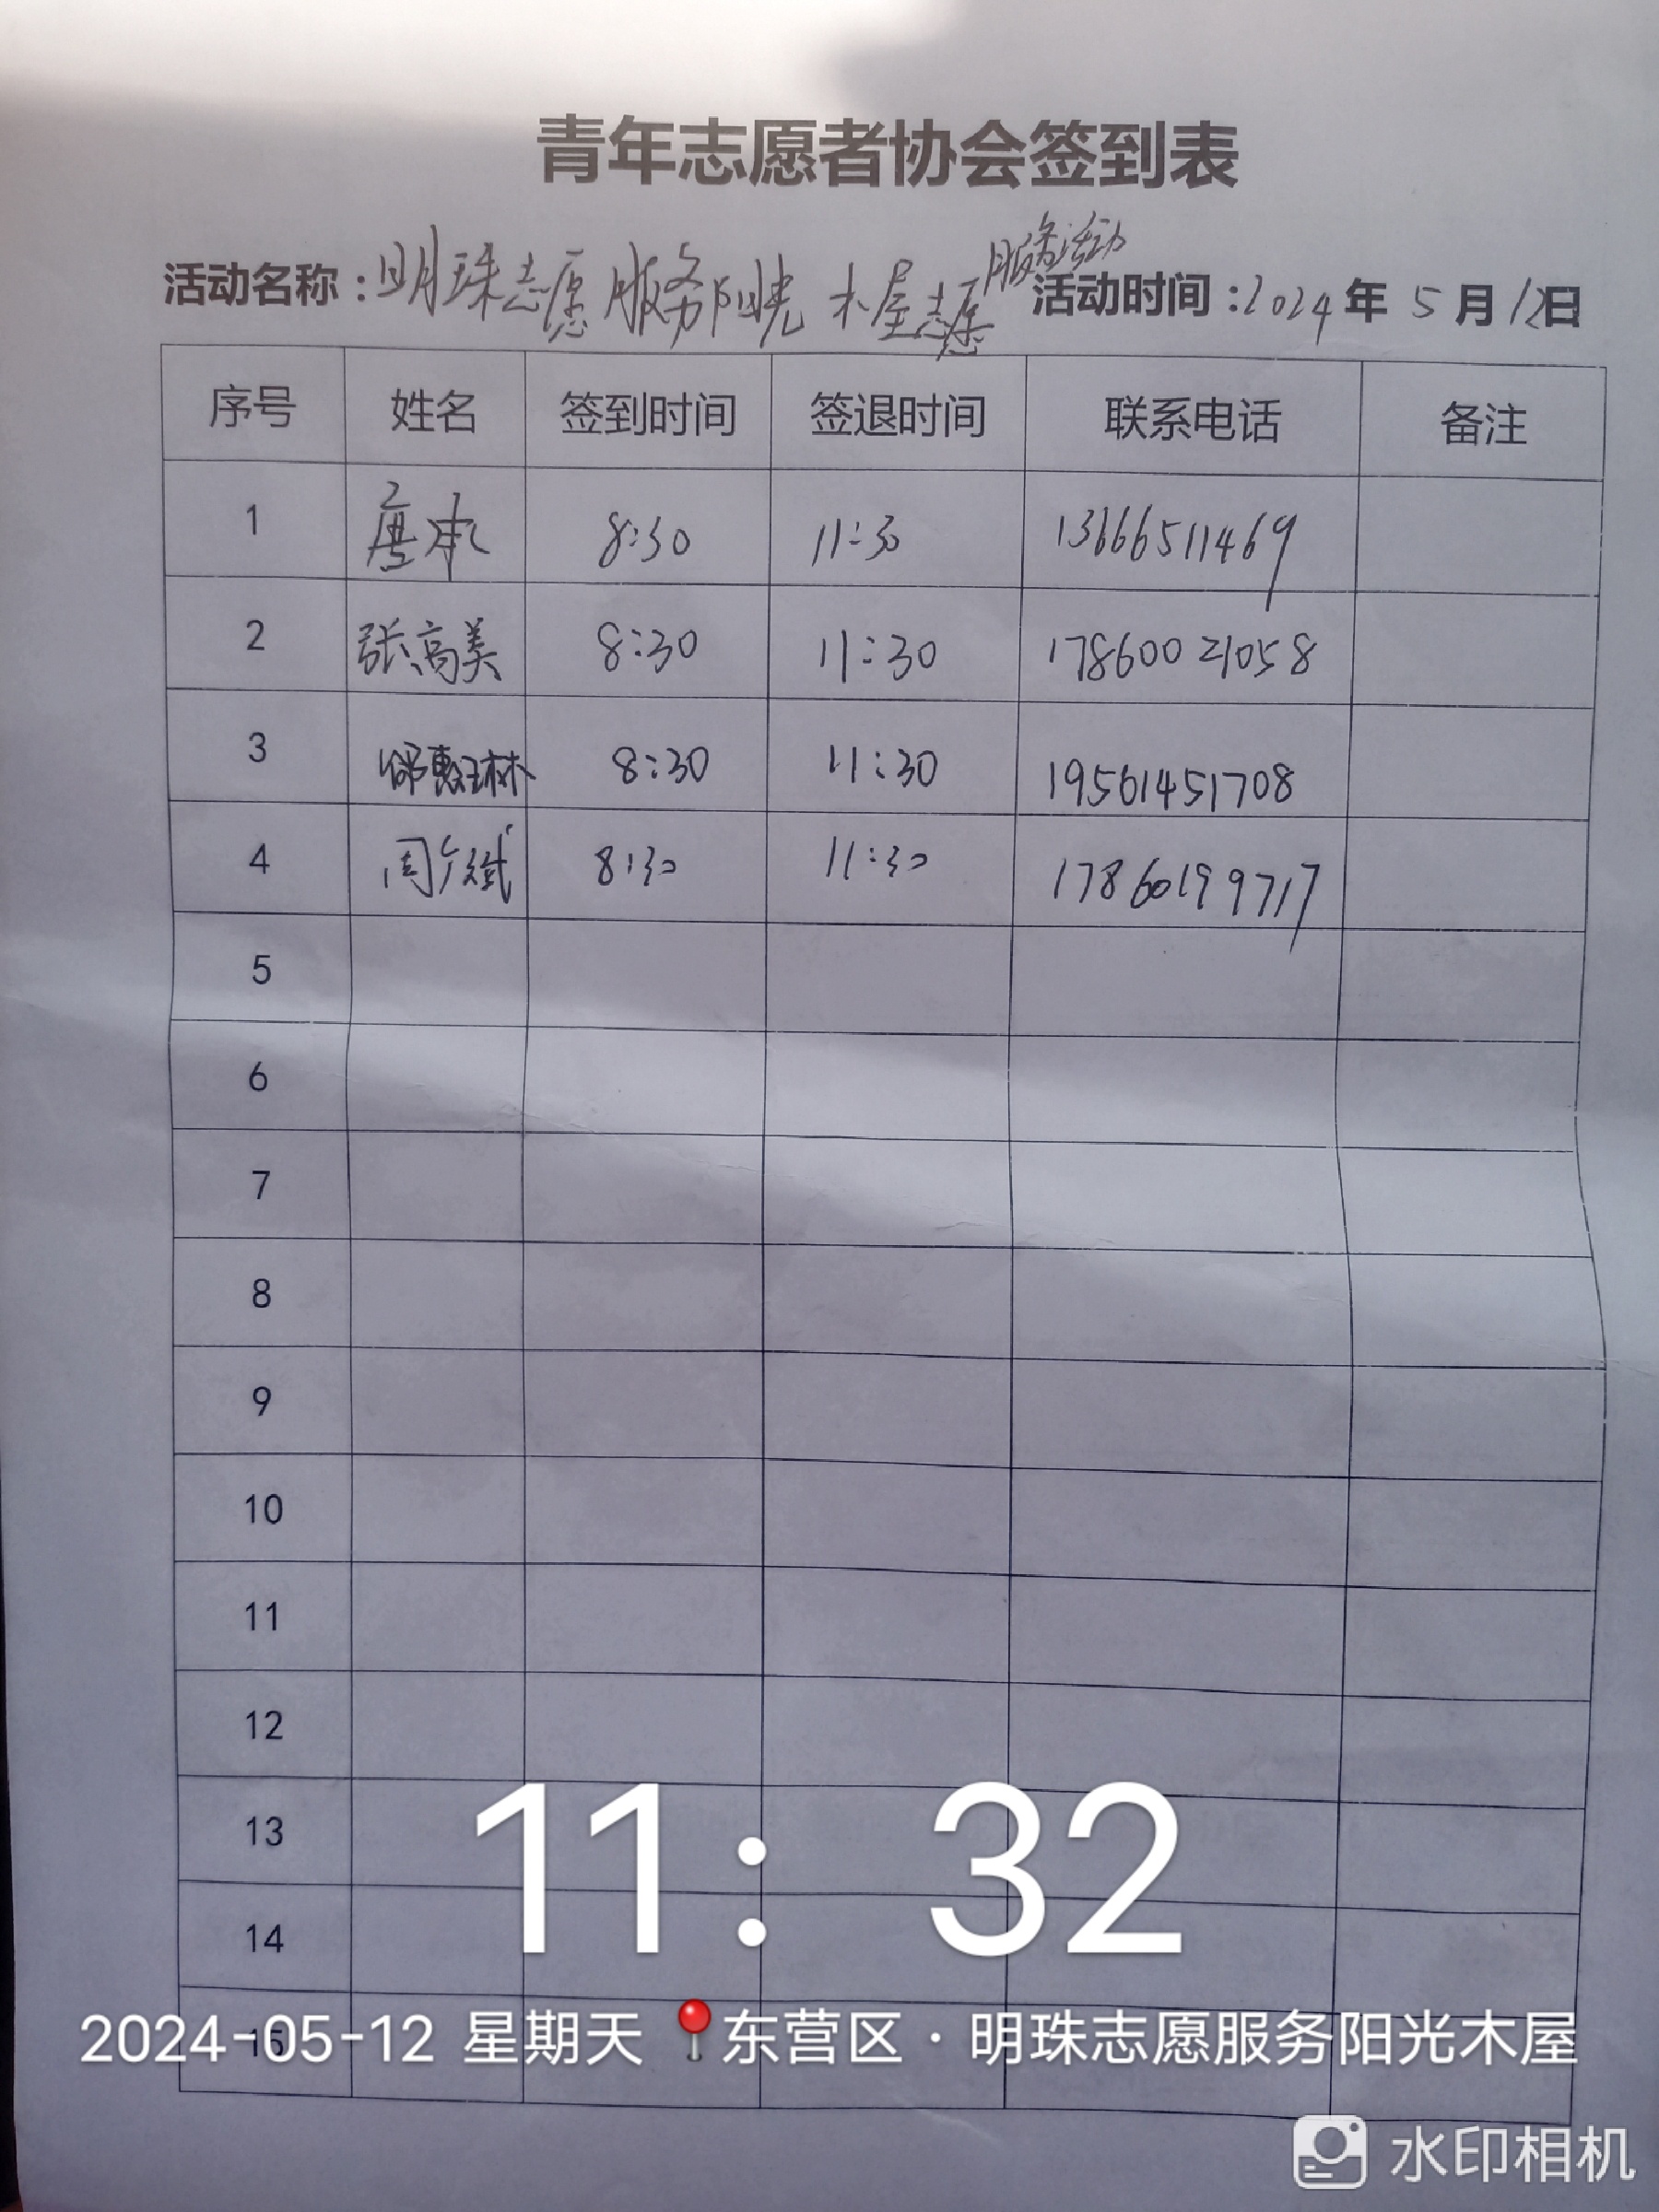 青年志愿者协会签到表
活动名称：明珠志愿服务阳光木屋志愿服务活动 活动时间：2024年5月12日
序号 姓名 签到时间 签退时间 联系电话 备注
1 唐 8:30 11:30 13666511469
2 张高美 8:30 11:30 17860021058
3 惠琳 8:30 11:30 19561451708
4 周 8:30 11:30 17860199717
5
6
7
8
9
10
11
12
13
14
15
11: 32
2024-05-12 星期天 东营区·明珠志愿服务阳光木屋
水印相机